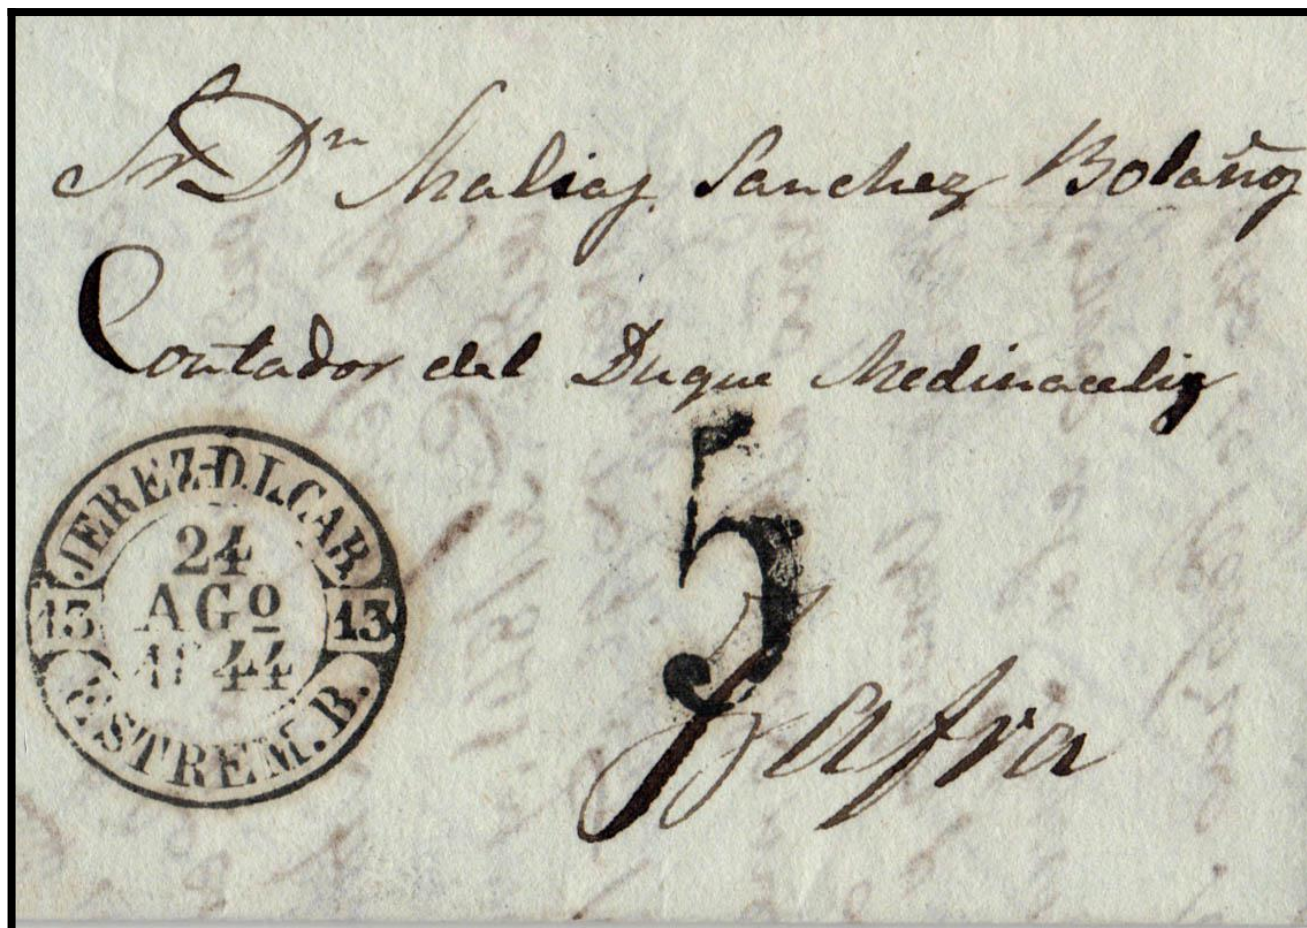 Sr Dn Matias Sanchez Bolaños
Contador del Duque Medinaceli
JEREZ-D.L.CAB.
24
AGO
13 13
1844
ESTREM.B.
5
Zafra